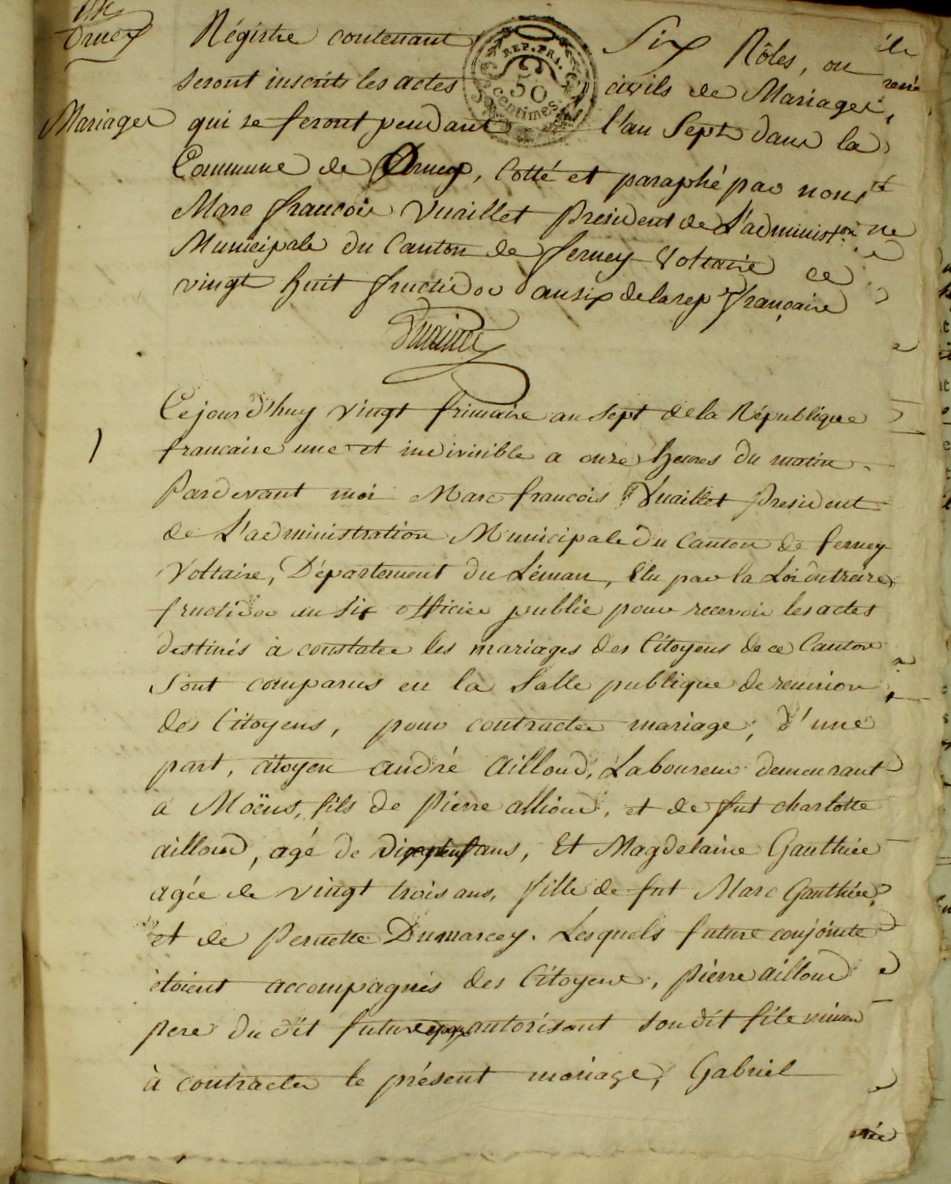 Ornex
Mariages
Régistre contenant Six Rôles, ou
REP. FRA.
50
centimes
seront inscrits les actes civils de Mariages,
qui se feront pendant l'an Sept dans la
Commune de Ornex, Cotté et paraphé par nous
Marc françois Vuaillet Président de L'administ.on
Municipale du Canton de ferney Voltaire ce
vingt huit fructidor an six de la rep. française
Vuaillet
1
Cejourd'huy vingt frimaire an sept de la République
francaise une et indivisible a onze heures du matin.
Pardevant moi Marc françois Vuaillet Président
de L'administration Municipale du Canton de ferney
Voltaire, Département du Léman, Elu par la Loi du treize
fructidor an Six officier public pour recevoir les actes
destinés à constater les mariages des Citoyens de ce Canton
Sont comparus en la Salle publique de reunion
des Citoyens, pour contracter mariage, d'une
part, citoyen andré ailloud, Laboureur demeurant
a Moëns, fils de Pierre allioud, et de fut charlotte
ailloud, agé de ans, Et Magdelaine Gauthier
agée de vingt trois ans, fille de fut Marc Gauthier
et de Pernette Dumarcey. Lesquels futurs conjoints
étoient accompagnés des Citoyens, Pierre ailloud
pere du dit futur autorisant son dit fils mineur
à contracter le présent mariage, Gabriel